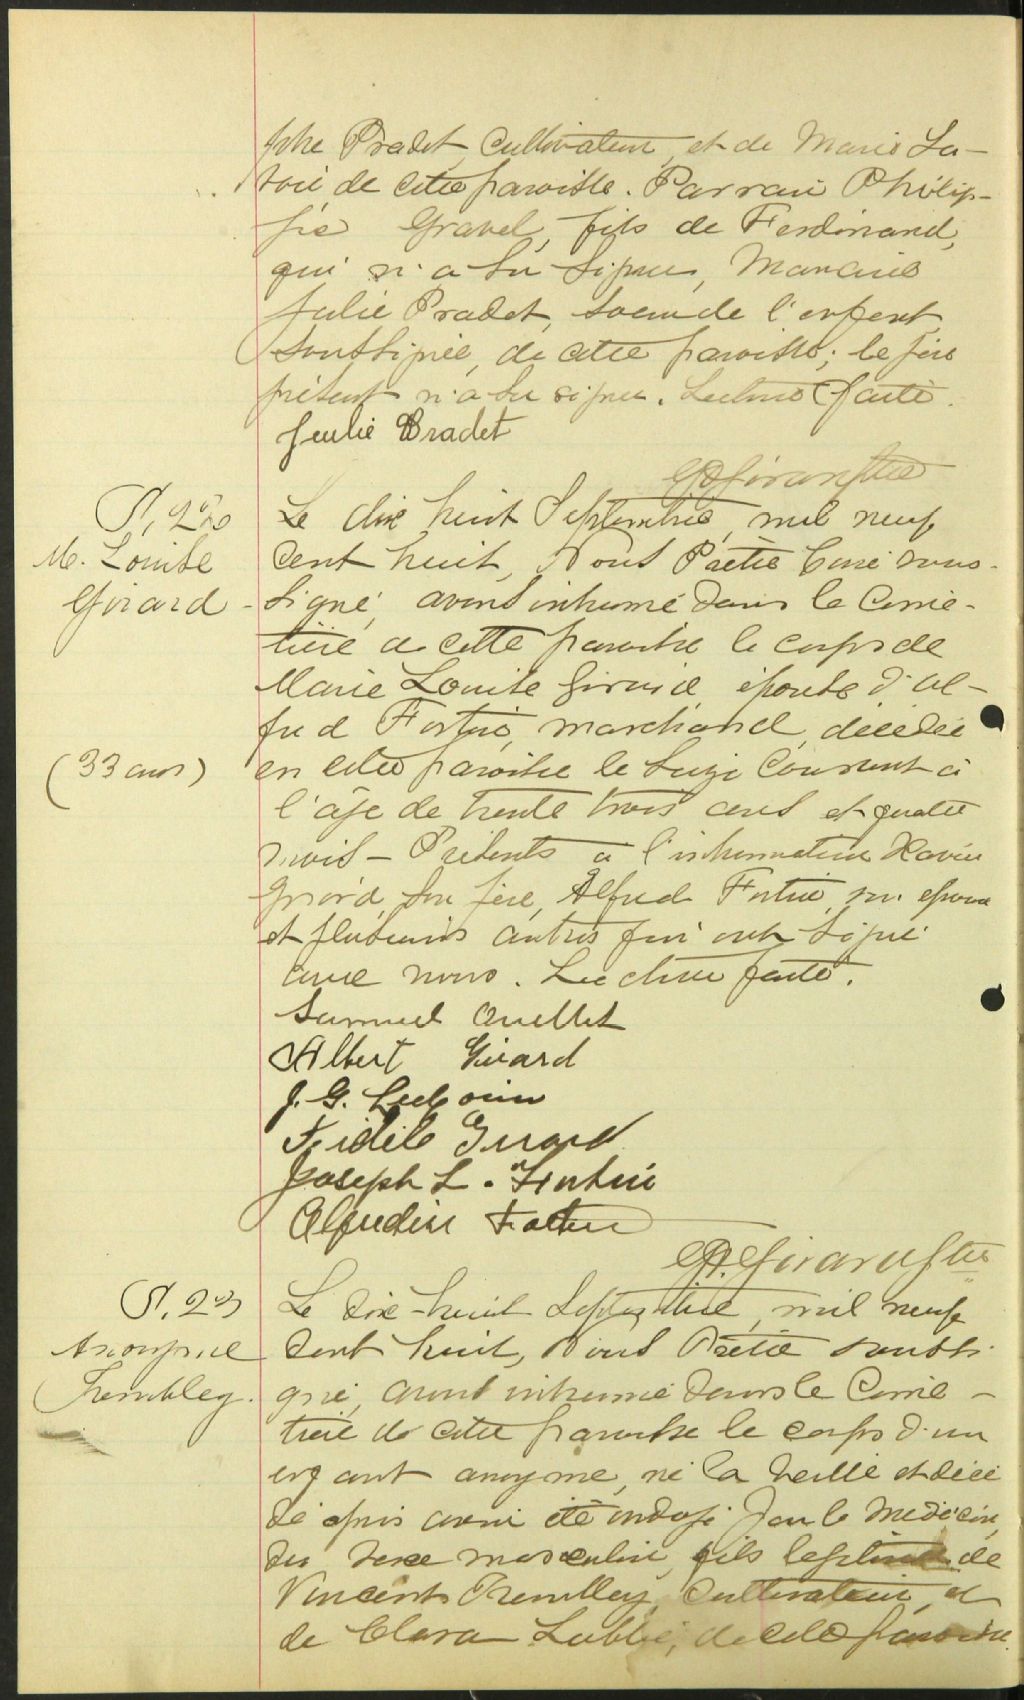 phe Pradet, cultivateur, et de Marie La-
voie de cette paroisse. Parrain Philip-
pe Gravel, fils de Ferdinand,
qui n'a su signer, Marraine
Julie Pradet, soeur de l'enfant
soussignée, de cette paroisse; le père
présent n'a su signer. Lecture faite.
Julie Bradet
Girard Ptre
S. 22
M. Louise
Girard
(33 ans)
Le dix huit Septembre, mil neuf
cent huit, Nous Prêtre Curé sous-
signé, avons inhumé dans le Cime-
tière de cette paroisse le corps de
Marie Louise Girard, épouse d'Al-
fred Fortin, marchand, décédée
en cette paroisse le seize courant à
l'âge de trente trois ans et quatre
mois - Présents à l'inhumation Xavier
Girard, son père, Alfred Fortin, son époux
et plusieurs autres qui ont signé
avec nous. Lecture faite.
Samuel Ouellet
Albert Girard
J. G.
Fidèle Girard
Joseph L. Fortin
Fortin
Girard Ptre
S. 23
Anonyme
Tremblay.
Le dix-huit Septembre, mil neuf
cent huit, Nous Prêtre soussi-
gné, avons inhumé dans le Cime-
tière de cette paroisse le corps d'un
enfant anonyme, né la veille et décé
dé après avoir été ondoyé par le médecin,
du sexe masculin, fils légitime de
Vincent Tremblay, Cultivateur, et
de Clara de cette paroisse.